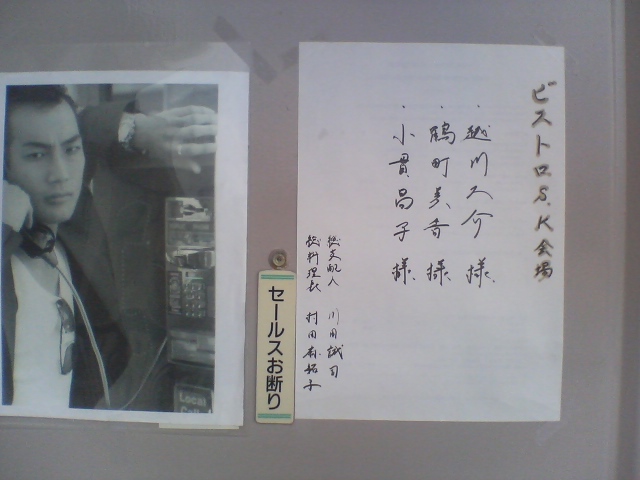 ビストロ.S.K会場
・越川久介 様
・鶴町美香 様
・小貫昌子 様
総支配人 川田誠司
総料理長 村田
セールスお断り
Local